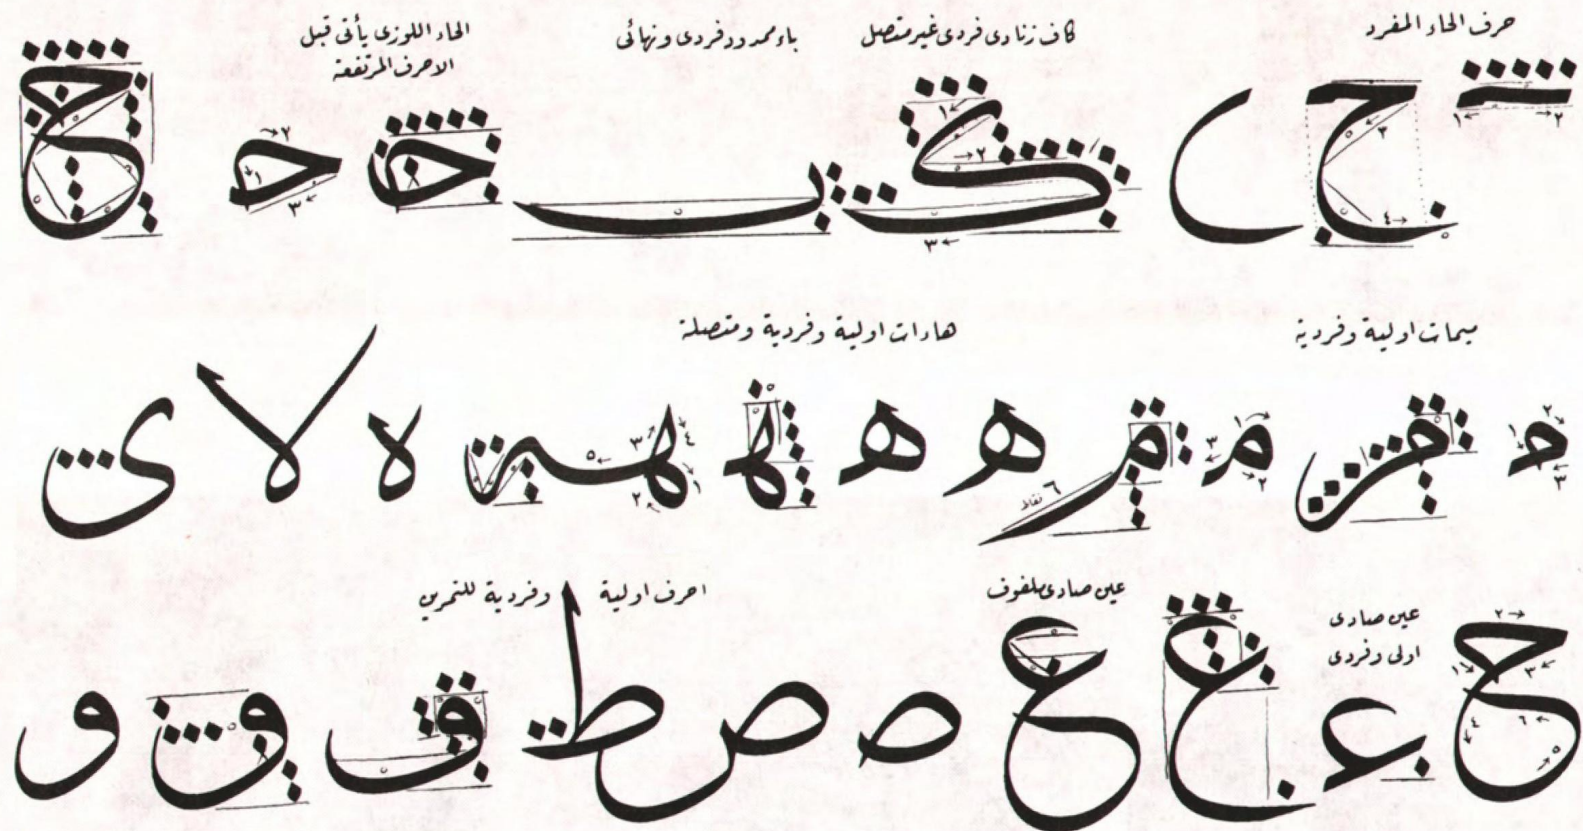 حرف الحاء المفرد
كاف زنادى فردى غير متصل
باء ممدود فردى ونهائى
الحاء اللوزى يأتى قبل
الاحرف المرتفعة
ميمات اولية وفردية
هاءات اولية وفردية ومتصلة
م م م ه ه ه ه لا ى
٦ نقاط
عين صادى
اولى وفردى
عين صادى ملفوف
احرف اولية وفردية للتمرين
ح ع ع ع ص ص ط ق و و